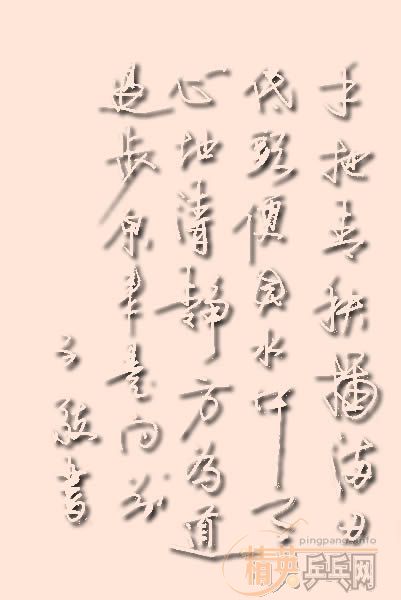 手把青秧插满田
低頭便見水中天
心地清静方为道
退步原来是向前
書
pingpang.info
精英乒乓网